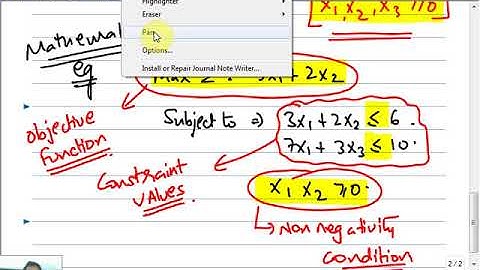 Highlighter
Eraser
Pan
Options...
Install or Repair Journal Note Writer...
x₁, x₂, x₃ ≥ 0
Mathemat
eq
Max Z = 3x₁ + 2x₂
Objective
function
Subject to ⇒
3x₁ + 2x₂ ≤ 6.
7x₁ + 3x₃ ≤ 10.
Constraint
values
x₁ x₂ ≥ 0.
↳ Non negativity
condition
2 / 2